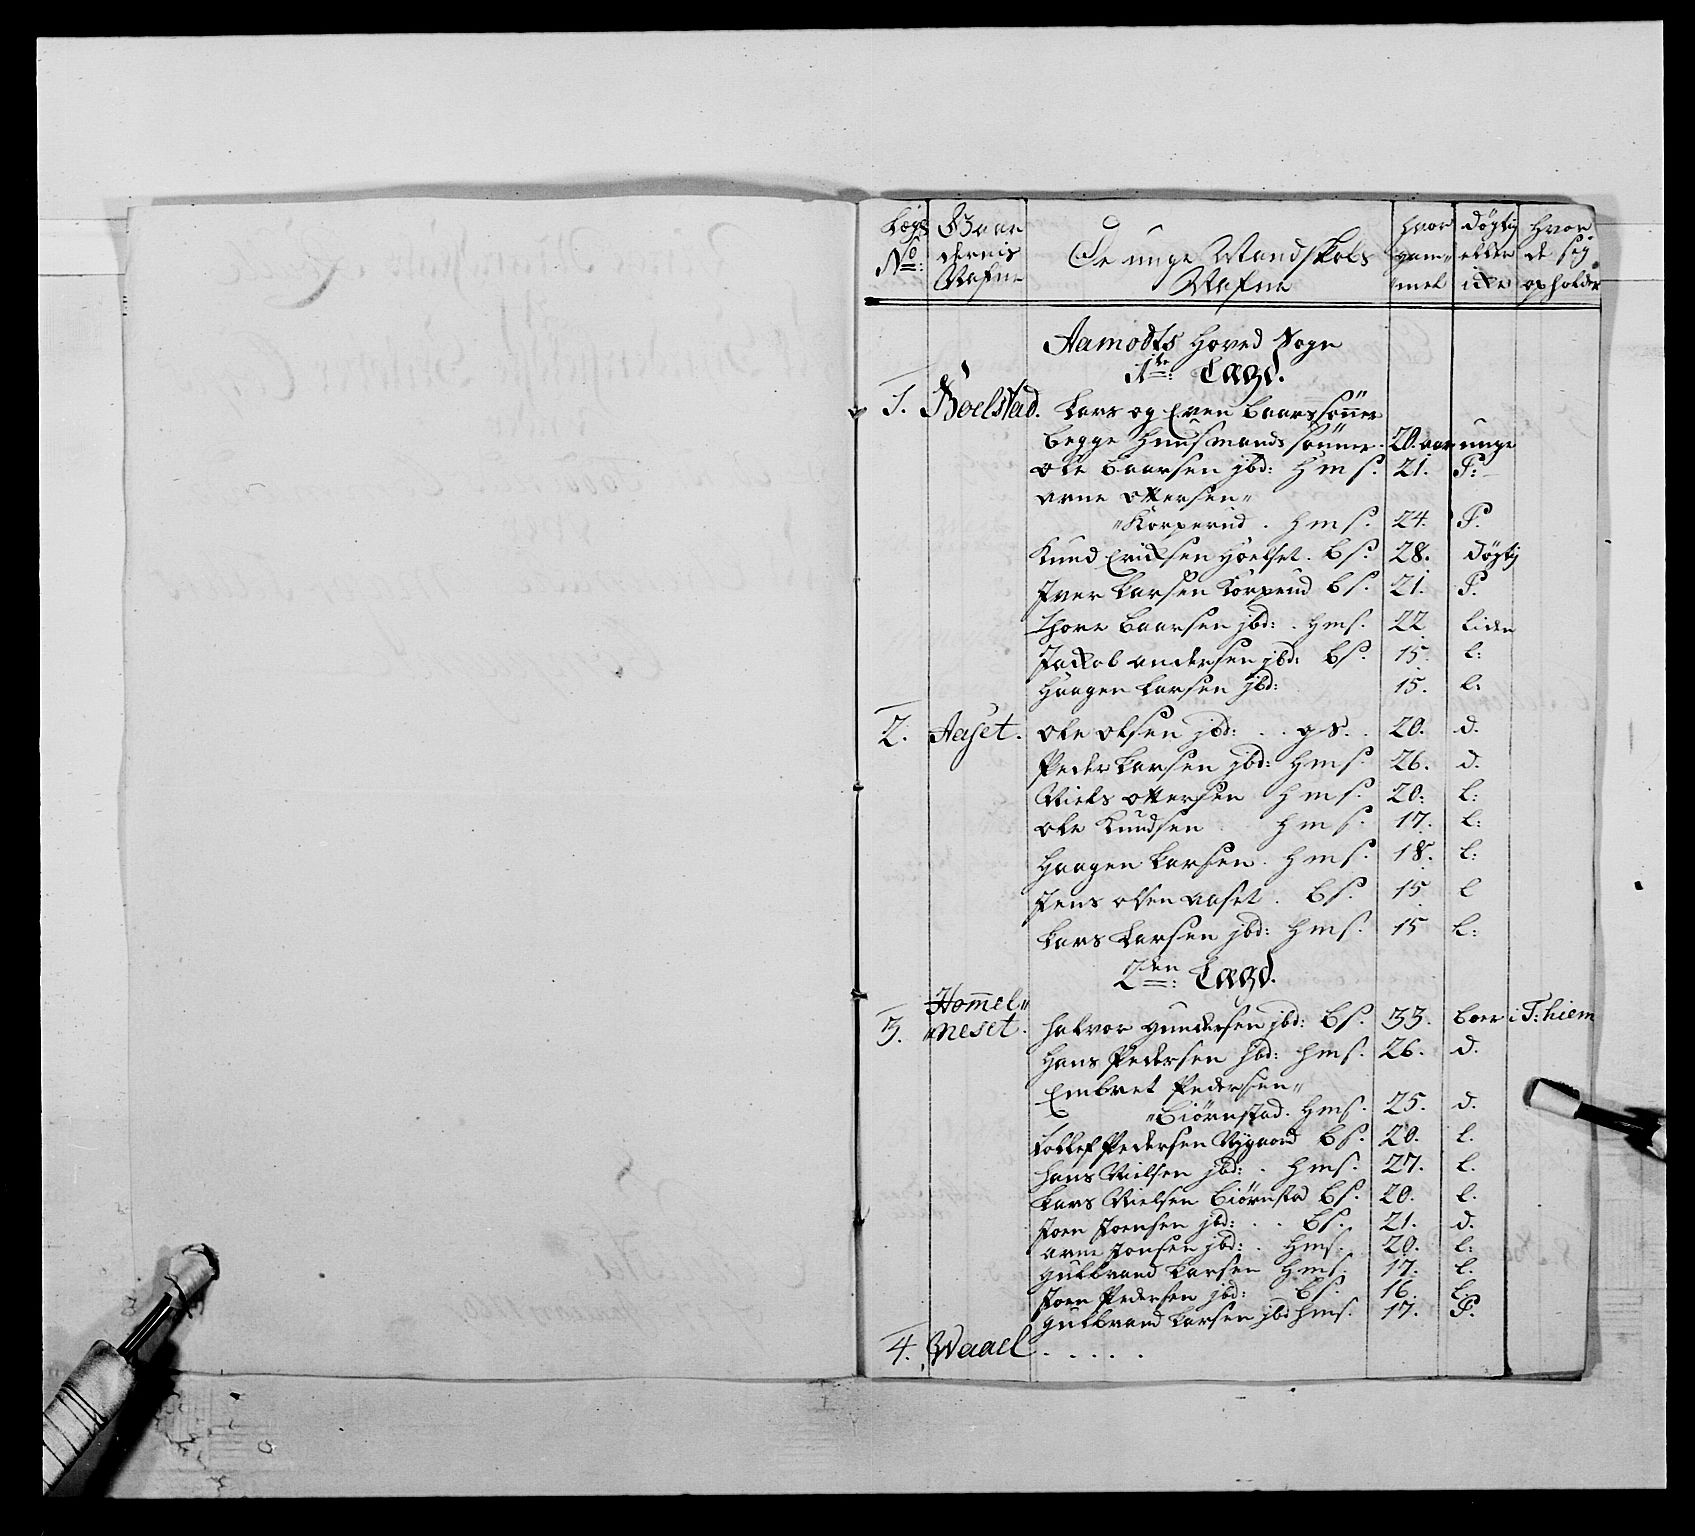 Lægs No: | Gaardernis Nafne | De unge Mandskabs Nafne | hvor gammel | døgtig eller ikke | hvor de sig opholder
Aamodts Hoved Sogn
1te: Lægd.
1. Boelstad. Lars og Even Baarssønner
begge Huusmands sønner. 20. aar unge
Ole Baarsen jbd: Hms. 21. P:
Arne Ottersen
Korperud. Hms. 24. P.
Knud Ericksen Hoelset. bs. 28. døgtig
Iver Larsen Korperud bs. 21. P.
Thore Baarsen jbd: Hms. 22 liden
Jackob Andersen jbd: bs. 15. l:
Haagen Larsen jbd: 15. l:
2. Aaset. Ole Olsen jbd: . . gs. 20. d.
Peder Larsen jbd: Hms. 26. d.
Niels Ottersen Hms. 20: l:
Ole Knudsen Hms. 17. l:
Haagen Larsen. Hms. 18. l:
Jens Olsen Aaset. bs. 15 l
Lars Larsen jbd: Hms. 15 l:
2den: Lægd.
Hommel-
3. neset. Halvor Gundersen jbd: bs. 33. boer i T:hiem
Hans Pedersen jbd: Hms. 26. d.
Embret Pedersen
Biørnstad. Hms. 25. d.
Tollef Pedersen Nygaard bs. 20. l.
Hans Nielsen jbd: . Hms. 27. l.
Lars Nielsen Biørnstad bs. 20. l.
Joen Joensen jbd: . . bs. 21. d.
Arne Jonsen jbd: . Hms. 20. l:
Gulbrand Larsen Hms. 17. l.
Joen Pedersen jbd: bs. 16. l.
Gulbrand Larsen jbd Hms. 17. P.
4. Waael . . . . .